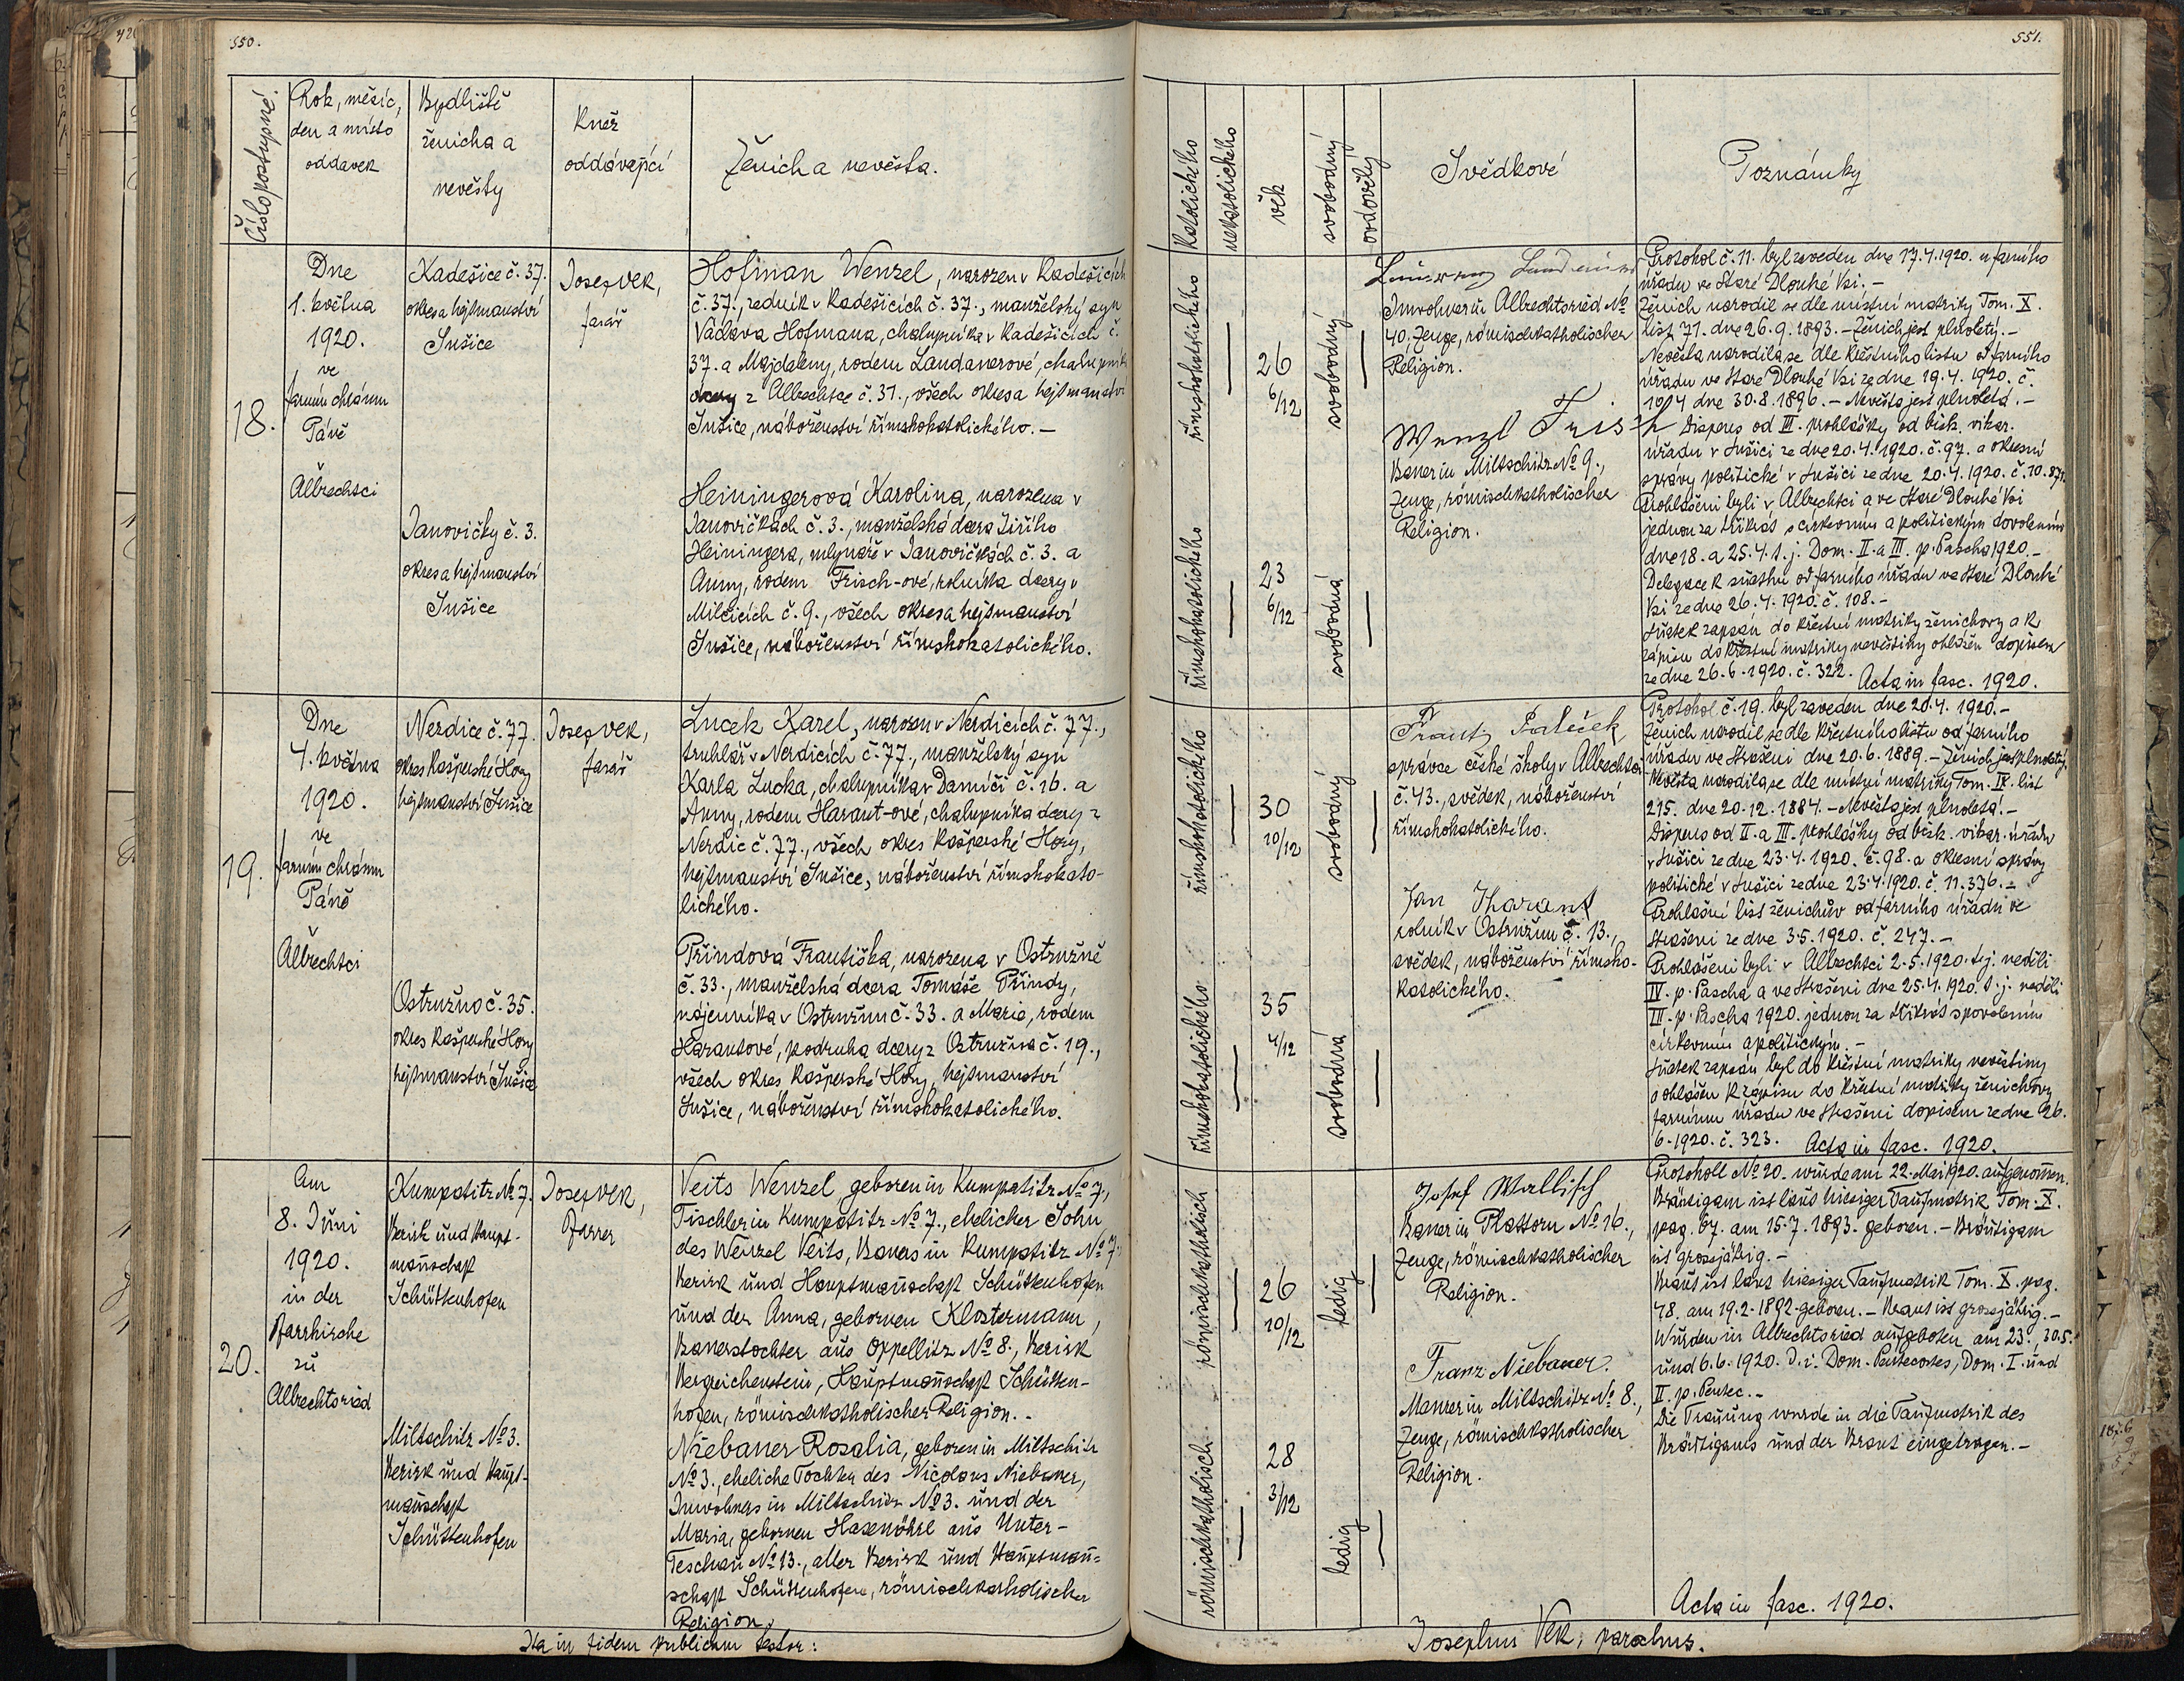 550.
Číslo postupné.
Rok, měsíc,
den a místo
oddavek
Bydliště
ženicha a
nevěsty
Kněz
oddávající
Ženich a nevěsta.
18.
Dne
1. května
1920.
ve
farním chrámu
Páně
v
Albrechtci
Kadešice č. 37.
okres a hejtmanství
Sušice
Janovičky č. 3.
okres a hejtmanství
Sušice
Josef Vek,
farář
Hofman Wenzel, narozen v Kadešicích
č. 37., zedník v Kadešicích č. 37., manželský syn
Václava Hofmana, chalupníka v Kadešicích č.
37. a Majdaleny, rodem Landanerové, chalupníka
dcery z Albrechtce č. 31., všech okres a hejtmanství
Sušice, náboženství římskokatolického. —
Heiningerová Karolina, narozena v
Janovičkách č. 3., manželská dcera Jiřího
Heiningera, mlynáře v Janovičkách č. 3. a
Anny, rodem Frisch-ové, rolníka dcery v
Milčicích č. 9., všech okres a hejtmanství
Sušice, náboženství římskokatolického.
19.
Dne
4. května
1920.
ve
farním chrámu
Páně
v
Albrechtci
Nerdice č. 77.
okres Kašperské Hory
hejtmanství Sušice
Ostružno č. 35.
okres Kašperské Hory
hejtmanství Sušice
Josef Vek,
farář
Lucek Karel, narozen v Nerdicích č. 77.,
truhlář v Nerdicích č. 77., manželský syn
Karla Lucka, chalupníka v Damíči č. 16. a
Anny, rodem Harant-ové, chalupníka dcery z
Nerdic č. 77., všech okres Kašperské Hory,
hejtmanství Sušice, náboženství římskokato-
lického.
Přindová Františka, narozena v Ostružně
č. 33., manželská dcera Tomáše Přindy,
nájemníka v Ostružnu č. 33. a Marie, rodem
Harantové, podruha dcery z Ostružna č. 19.,
všech okres Kašperské Hory, hejtmanství
Sušice, náboženství římskokatolického.
20.
Am
8. Juni
1920.
in der
Pfarrkirche
zu
Albrechtsried
Kumpatitz No 7.
Bezirk und Haupt-
mannschaft
Schüttenhofen
Miltschitz No 3.
Bezirk und Haupt-
mannschaft
Schüttenhofen
Josef Vek,
Pfarrer
Veits Wenzel geboren in Kumpatitz No 7.,
Tischler in Kumpatitz No 7., ehelicher Sohn
des Wenzel Veits, Bauers in Kumpatitz No 7.
Bezirk und Hauptmannschaft Schüttenhofen
und der Anna, gebornen Klostermann,
Bauerstochter aus Oppelitz No 8., Bezirk
Bergreichenstein, Hauptmannschaft Schütten-
hofen, römischkatholischer Religion. -
Niebauer Rosalia, geboren in Miltschitz
No 3., eheliche Tochter des Nicolaus Niebauer,
Inwohners in Miltschitz No 3. und der
Maria, gebornen Hasenöhrl aus Unter-
Teschau No 13., aller Bezirk und Hauptmann-
schaft Schüttenhofen, römischkatholischer
Religion.
Ita in fidem publicam testor:
551.
katolického
nekatolického
věk
svobodný
ovdovělý
Svědkové
Poznámky
římskokatolického
—
26
6/12
svobodný
—
římskokatolického
—
23
6/12
svobodná
—
Inwohner in Albrechtsried No
40. Zeuge, römischkatholischer
Religion.
Wenzl Frisch
Bauer in Miltschitz No 9.,
Zeuge, römischkatholischer
Religion.
Protokol č. 11. byl zaveden dne 17.4.1920. u farního
úřadu ve Staré Dlouhé Vsi. —
Ženich narodil se dle místní matriky Tom. X.
list 71. dne 26.9.1893. — Ženich jest plnoletý. —
Nevěsta narodila se dle křestního listu od farního
úřadu ve Staré Dlouhé Vsi ze dne 19.4.1920. č.
104 dne 30.8.1896. — Nevěsta jest plnoletá. —
Dispens od III. prohlášky od bisk. vikar.
úřadu v Sušici ze dne 20.4.1920. č. 97. a okresní
správy politické v Sušici ze dne 20.4.1920. č. 10.871.
Prohlášeni byli v Albrechtci a ve Staré Dlouhé Vsi
jednou za třikrát s církevním a politickým dovolením
dne 18. a 25.4. t.j. Dom. II. a III. p. Pascha 1920. —
Delegace k sňatku od farního úřadu ve Staré Dlouhé
Vsi ze dne 26.4.1920. č. 108. —
Sňatek zapsán do křestní matriky ženichovy a k
zápisu do křestní matriky nevěstiny ohlášen dopisem
ze dne 26.6.1920. č. 322. Acta in fasc. 1920.
římskokatolického
—
30
10/12
svobodný
—
římskokatolického
—
35
4/12
svobodná
—
správce české školy v Albrechtci
č. 43., svědek, náboženství
římskokatolického.
Jan Harant
rolník v Ostružnu č. 13.,
svědek, náboženství římsko-
katolického.
Protokol č. 19. byl zaveden dne 20.4.1920. —
Ženich narodil se dle křestního listu od farního
úřadu ve Strašeni dne 20.6.1889. — Ženich jest plnoletý.
Nevěsta narodila se dle místní matriky Tom. IX. list
215. dne 20.12.1884. — Nevěsta jest plnoletá. —
Dispens od II. a III. prohlášky od bisk. vikar. úřadu
v Sušici ze dne 23.4.1920. č. 98. a okresní správy
politické v Sušici ze dne 23.4.1920. č. 11.376. —
Prohlašní list ženichův od farního úřadu ve
Strašeni ze dne 3.5.1920. č. 247. —
Prohlášeni byli v Albrechtci 2.5.1920. t.j. neděli
IV. p. Pascha a ve Strašeni dne 25.4.1920. t.j. neděli
III. p. Pascha 1920. jednou za třikrát s povolením
církevním a politickým. —
Sňatek zapsán byl do křestní matriky nevěstiny
a ohlášen k zápisu do křestní matriky ženichovy
farnímu úřadu ve Strašeni dopisem ze dne 26.
6.1920. č. 323. Acta in fasc. 1920.
römischkatholisch
—
26
10/12
ledig
—
römischkatholisch
—
28
3/12
ledig
—
Josef Wallisch
Bauer in Plattorn No 16.,
Zeuge, römischkatholischer
Religion.
Franz Niebauer.
Maurer in Miltschitz No 8.,
Zeuge, römischkatholischer
Religion.
Protokoll No 20. wurde am 22. Mai 1920. aufgenommen.
Bräutigam ist laut hiesiger Taufmatrik Tom. X.
pag. 67. am 15.7.1893. geboren. — Bräutigam
ist grossjährig. —
Braut ist laut hiesiger Taufmatrik Tom. X. pag.
48. am 19.2.1892. geboren. — Braut ist grossjährig. —
Wurden in Albrechtsried aufgeboten am 23., 30.5.
und 6.6.1920. d.i. Dom. Pentecostes, Dom. I. und
II. p. Pentec. —
Die Trauung wurde in die Taufmatrik des
Bräutigams und der Braut eingetragen. —
Acta in fasc. 1920.
Josephus Vek, parochus.